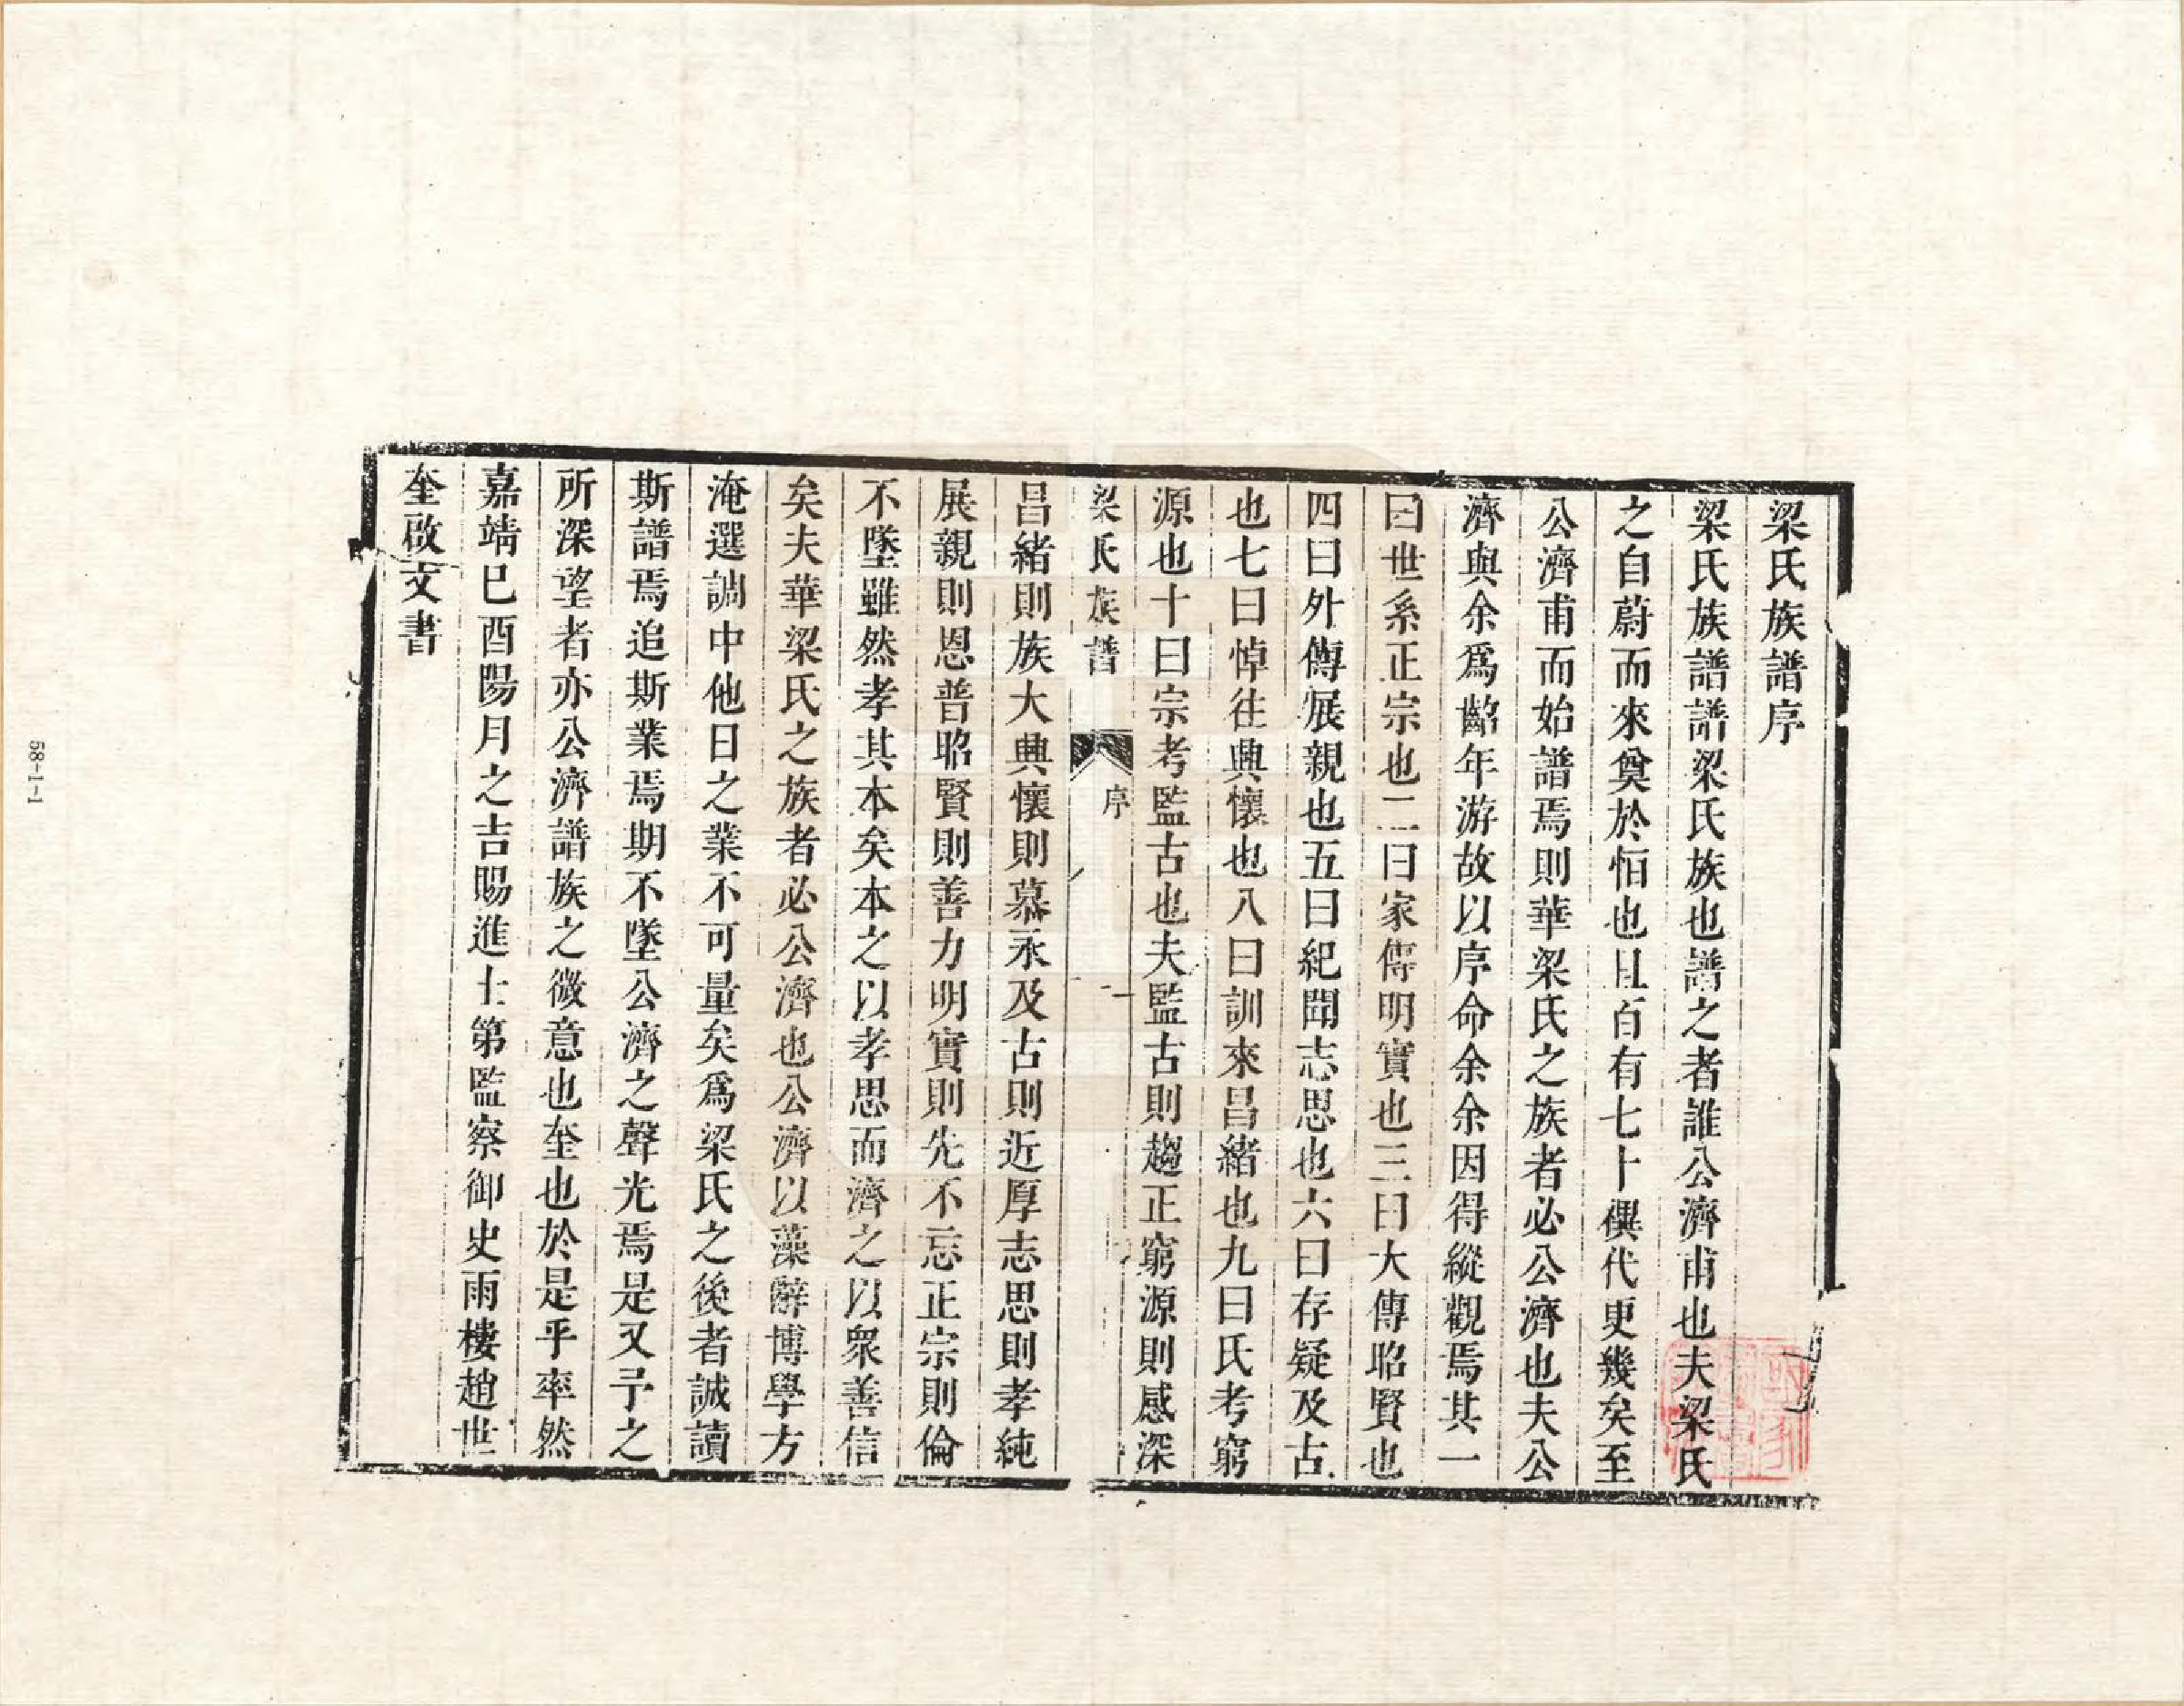 梁氏族譜序
梁氏族譜譜梁氏族也譜之者誰公濟甫也夫梁氏
之自蔚而來奠於恒也且百有七十禩代更幾矣至
公濟甫而始譜焉則華梁氏之族者必公濟也夫公
濟與余爲齠年游故以序命余余因得縱觀焉其一
曰世系正宗也二曰家傳明實也三曰大傳昭賢也
四曰外傳展親也五曰紀聞志思也六曰存疑及古
也七曰悼往興懷也八曰訓來昌緒也九曰氏考窮
源也十曰宗考監古也夫監古則趨正窮源則感深
梁氏族譜 序 一
昌緒則族大興懷則慕永及古則近厚志思則孝純
展親則恩普昭賢則善力明實則先不忘正宗則倫
不墜雖然孝其本矣本之以孝思而濟之以衆善信
矣夫華梁氏之族者必公濟也公濟以藻辭博學方
淹選調中他日之業不可量矣爲梁氏之後者誠讀
斯譜焉追斯業焉期不墜公濟之聲光焉是又予之
所深望者亦公濟譜族之微意也奎也於是乎率然
嘉靖巳酉陽月之吉賜進士第監察御史雨樓趙世
奎啟文書
58-1-1